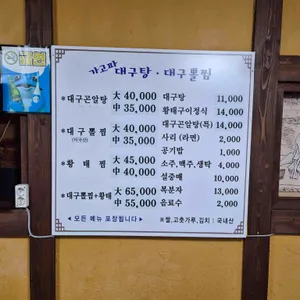 가고파 대구탕 · 대구뽈찜
*대구곤알탕 大 40,000
中 35,000
*대구뽈찜 大 40,000
中 35,000
*황태찜 大 45,000
中 40,000
*대구뽈찜+황태 大 65,000
中 55,000
◀ 모든 메뉴 포장됩니다 ▶
대구탕 11,000
황태구이정식 14,000
대구곤알탕(특) 14,000
사리 (라면) 2,000
공기밥 1,000
소주,맥주,생탁 4,000
설중매 10,000
복분자 13,000
음료수 2,000
※쌀,고춧가루,김치 : 국내산